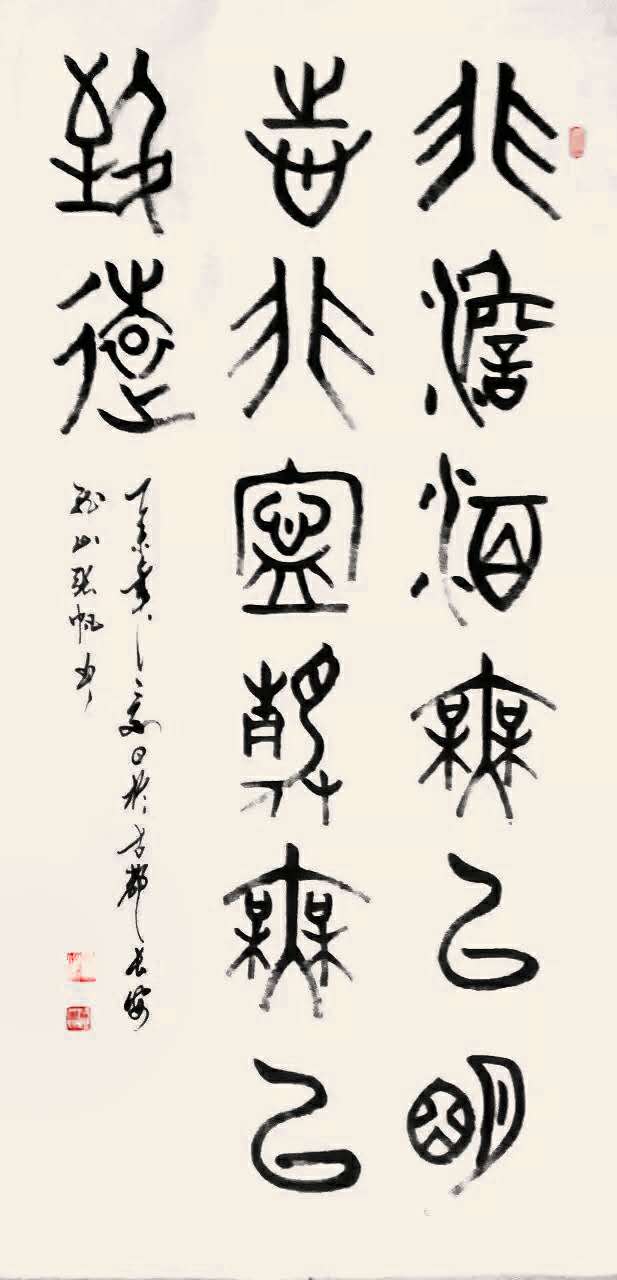 非澹泊無以明
志非寧靜無以
致遠
日於古都長安
山張帆書